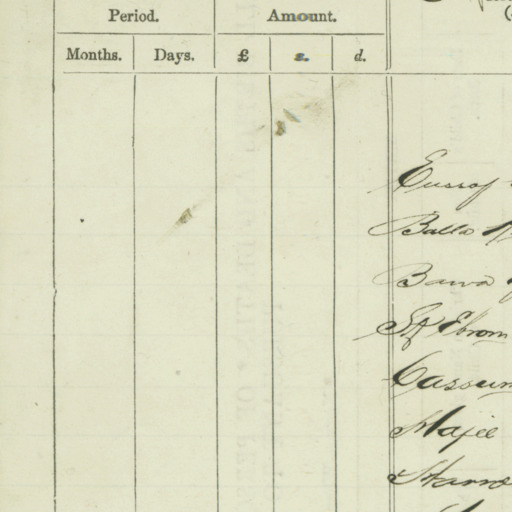 Period. Amount.
Months. Days. £ s. d.
Eussof
Balla
Bawa
Sk Ebrom
Cassum
Hajee